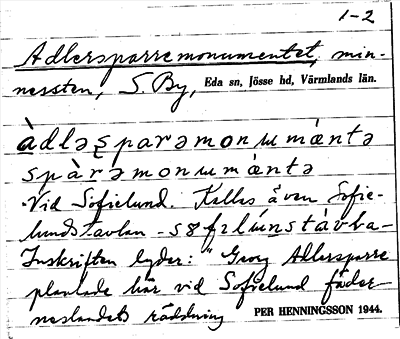 1-2
Adlersparremonumentet, min-
nessten, S. By, Eda sn, Jösse hd, Värmlands län.
àdləʂparəmonɯmántə
spàrəmonɯmántə
Vid Sofielund. Kallas även Sofie-
lundstavlan - søfılúnstávla -
Inskriften lyder: "Georg Adlersparre
planlade här vid Sofielund fäder-
neslandets räddning PER HENNINGSSON 1944.